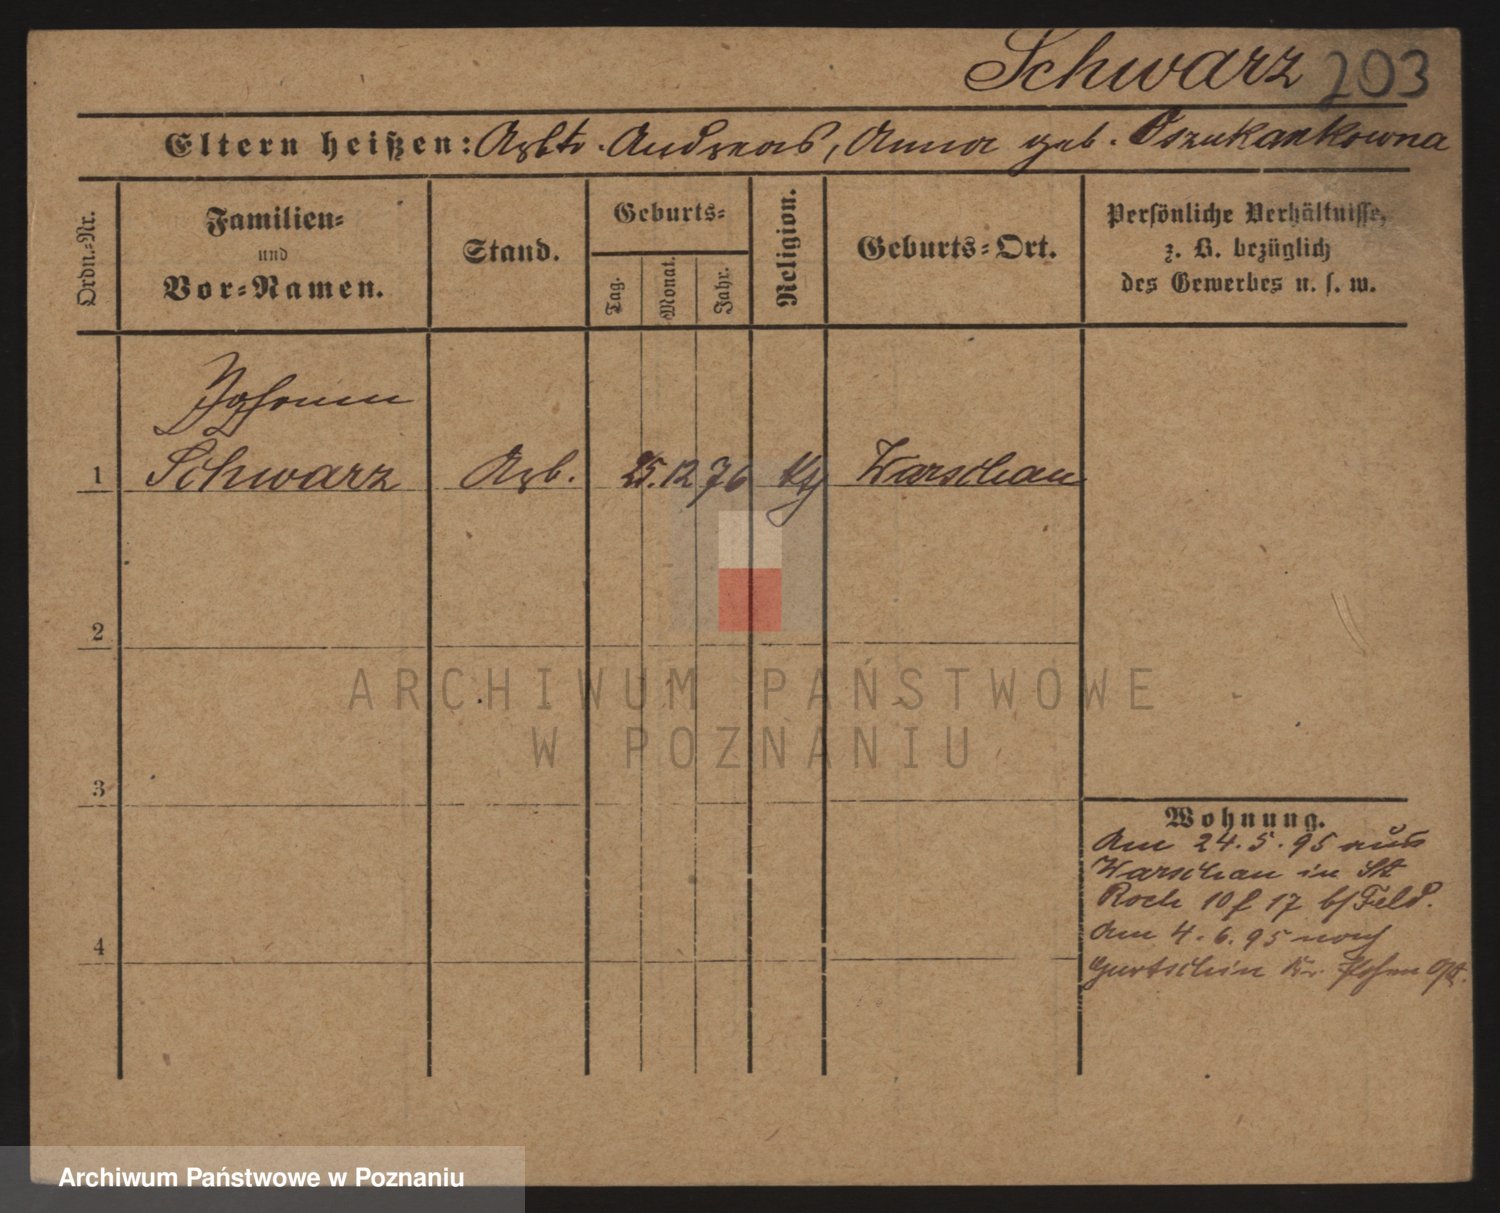 Schwarz 203
Eltern heißen: Arbtr. Andreas, Anna geb. Oszukankowna
Ordn.-Nr.
Familien-
und
Vor-Namen.
Stand.
Geburts-
Tag.
Monat.
Jahr.
Religion.
Geburts-Ort.
Persönliche Verhältnisse,
z. B. bezüglich
des Gewerbes u. s. w.
Johann
1 Schwarz Arb. 25. 12 76 kth Warschau
2
ARCHIWUM PAŃSTWOWE
W POZNANIU
3
Wohnung.
Am 24. 5. 95 aus
Warschau in St
Roch 10 f 17 b/Feld.
Am 4. 6. 95 nach
4
Gurtschin Kr. Posen Ost.
Archiwum Państwowe w Poznaniu